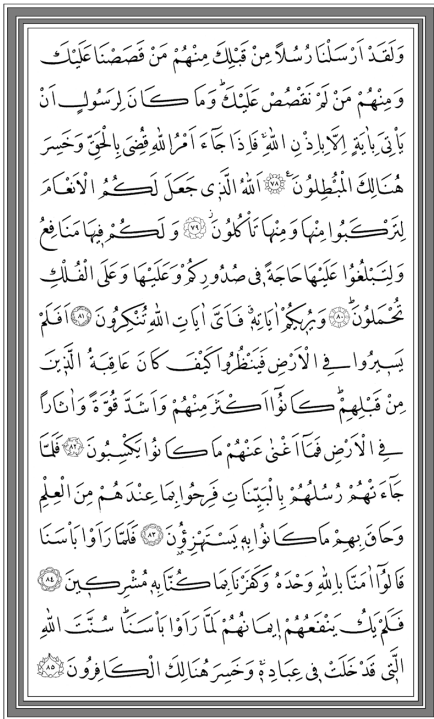 وَلَقَدْ اَرْسَلْنَا رُسُلًا مِنْ قَبْلِكَ مِنْهُمْ مَنْ قَصَصْنَا عَلَيْكَ
وَمِنْهُمْ مَنْ لَمْ نَقْصُصْ عَلَيْكَۜ وَمَا كَانَ لِرَسُولٍ اَنْ
يَأْتِىَ بِاٰيَةٍ اِلَّا بِاِذْنِ اللّٰهِۚ فَاِذَا جَٓاءَ اَمْرُ اللّٰهِ قُضِىَ بِالْحَقِّ وَخَسِرَ
هُنَالِكَ الْمُبْطِلُونَ۟ ﴿٧٨﴾ اَللّٰهُ الَّذ۪ى جَعَلَ لَكُمُ الْاَنْعَامَ
لِتَرْكَبُوا مِنْهَا وَمِنْهَا تَأْكُلُونَۘ ﴿٧٩﴾ وَلَكُمْ ف۪يهَا مَنَافِعُ
وَلِتَبْلُغُوا عَلَيْهَا حَاجَةً ف۪ى صُدُورِكُمْ وَعَلَيْهَا وَعَلَى الْفُلْكِ
تُحْمَلُونَۜ ﴿٨٠﴾ وَيُر۪يكُمْ اٰيَاتِه۪ۗ فَاَىَّ اٰيَاتِ اللّٰهِ تُنْكِرُونَ ﴿٨١﴾ اَفَلَمْ
يَس۪يرُوا فِى الْاَرْضِ فَيَنْظُرُوا كَيْفَ كَانَ عَاقِبَةُ الَّذ۪ينَ
مِنْ قَبْلِهِمْۜ كَانُٓوا اَكْثَرَ مِنْهُمْ وَاَشَدَّ قُوَّةً وَاٰثَارًا
فِى الْاَرْضِ فَمَٓا اَغْنٰى عَنْهُمْ مَا كَانُوا يَكْسِبُونَ ﴿٨٢﴾ فَلَمَّا
جَٓاءَتْهُمْ رُسُلُهُمْ بِالْبَيِّنَاتِ فَرِحُوا بِمَا عِنْدَهُمْ مِنَ الْعِلْمِ
وَحَاقَ بِهِمْ مَا كَانُوا بِه۪ يَسْتَهْزِؤُ۫نَ ﴿٨٣﴾ فَلَمَّا رَاَوْا بَأْسَنَا
قَالُٓوا اٰمَنَّا بِاللّٰهِ وَحْدَهُ وَكَفَرْنَا بِمَا كُنَّا بِه۪ مُشْرِك۪ينَ ﴿٨٤﴾
فَلَمْ يَكُ يَنْفَعُهُمْ ا۪يمَانُهُمْ لَمَّا رَاَوْا بَأْسَنَاۜ سُنَّتَ اللّٰهِ
الَّت۪ى قَدْ خَلَتْ ف۪ى عِبَادِه۪ۚ وَخَسِرَ هُنَالِكَ الْكَافِرُونَ ﴿٨٥﴾